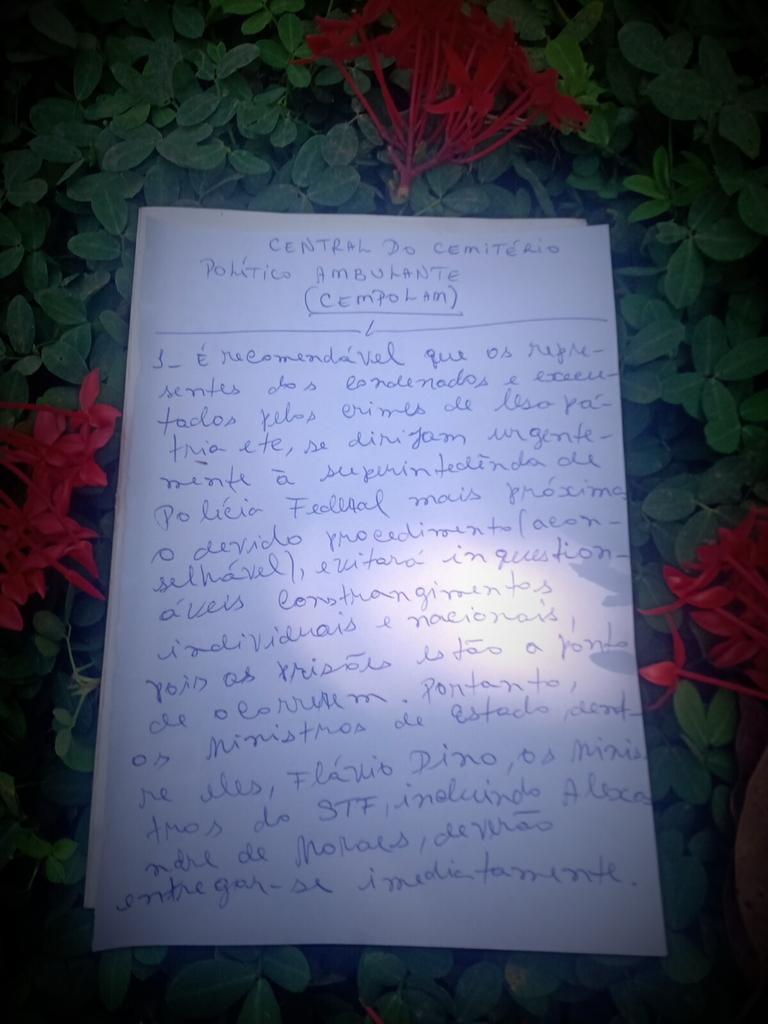 CENTRAL DO CEMITÉRIO
POLÍTICO AMBULANTE
(CEMPOLAM)
1- É recomendável que os repre-
sentes dos condenados e execu-
tados pelos crimes de lesa pá-
tria etc, se dirijam urgente-
mente à superintedênda de
Polícia Federal mais próxima
o devido procedimento (acon-
selhável), evitará inquestion-
áveis constrangimentos
individuais e nacionais,
pois as prisões estão a ponto
de ocorrerem. Portanto,
os Ministros de Estado, dent-
re eles, Flávio Dino, os Minis-
tros do STF, incluindo Alexa-
ndre de Moraes, deverão
entregar-se imediatamente.